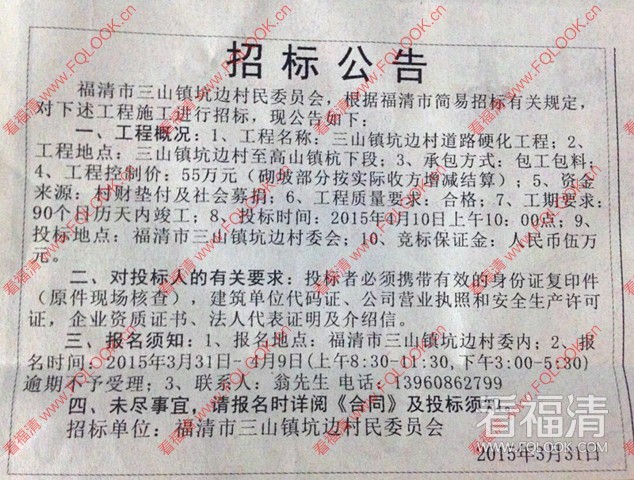 招标公告
福清市三山镇坑边村民委员会，根据福清市简易招标有关规定，
对下述工程施工进行招标，现公告如下：
一、工程概况：1、工程名称：三山镇坑边村道路硬化工程；2、
工程地点：三山镇坑边村至高山镇杭下段；3、承包方式：包工包料；
4、工程控制价：55万元（砌坡部分按实际收方增减结算）；5、资金
来源：村财垫付及社会募捐；6、工程质量要求：合格；7、工期要求：
90个日历天内竣工；8、投标时间：2015年4月10日上午10：00点；9、
投标地点：福清市三山镇坑边村委会；10、竞标保证金：人民币伍万
元。
二、对投标人的有关要求：投标者必须携带有效的身份证复印件
（原件现场核查），建筑单位代码证、公司营业执照和安全生产许可
证，企业资质证书、法人代表证明及介绍信。
三、报名须知：1、报名地点：福清市三山镇坑边村委内；2、报
名时间：2015年3月31日-4月9日(上午8:30-11:30,下午3:00-5:30)
逾期不予受理；3、联系人：翁先生 电话：13960862799
四、未尽事宜，请报名时详阅《合同》及投标须知。
招标单位：福清市三山镇坑边村民委员会
2015年3月31日
看福清
www.FQLOOK.cn